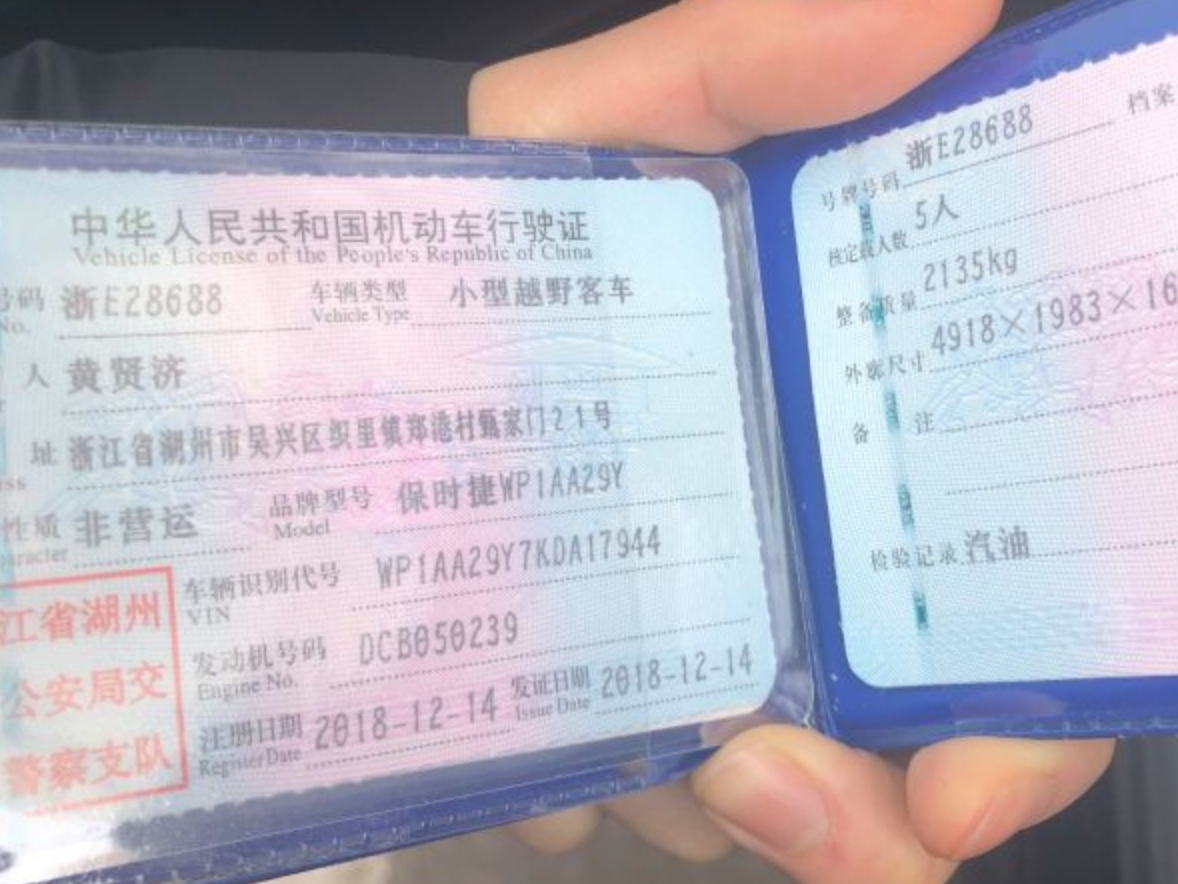 中华人民共和国机动车行驶证
Vehicle License of the People's Republic of China
号码 浙E28688 车辆类型 小型越野客车
No. Vehicle Type
人 黄贤济
址 浙江省湖州市吴兴区织里镇郑港村甄家门21号
性质 非营运 品牌型号 保时捷WP1AA29Y
Model
车辆识别代号 WP1AA29Y7KDA17944
VIN
发动机号码 DCB050239
Engine No.
注册日期 2018-12-14 发证日期 2018-12-14
Register Date Issue Date
江省湖州
公安局交
警察支队
号牌号码 浙E28688 档案
核定载人数 5人
整备质量 2135kg
外廓尺寸 4918×1983×16
备 注
检验记录 汽油